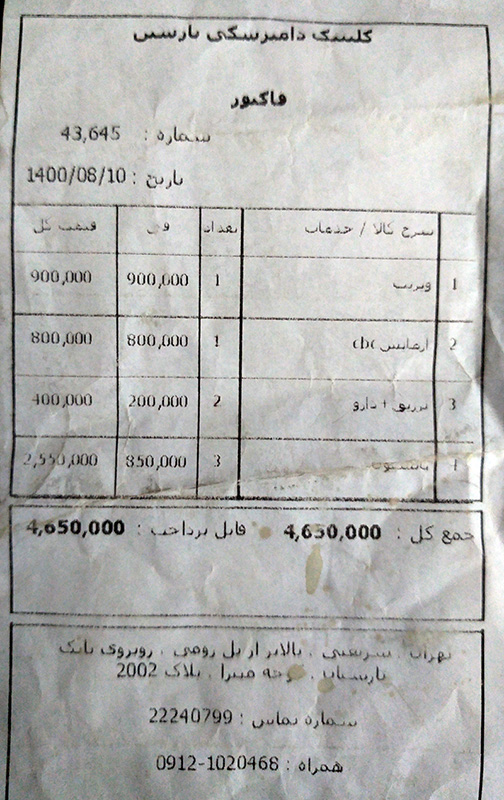 کلینیک دامپزشکی پارسین
فاکتور
شماره : 43,645
تاریخ : 1400/08/10
شرح کالا / خدمات تعداد فی قیمت کل
1 ویزیت 1 900,000 900,000
2 آزمایش cbc 1 800,000 800,000
3 تزریق + دارو 2 200,000 400,000
4 پانسیون 3 850,000 2,550,000
جمع کل : 4,650,000 قابل پرداخت : 4,650,000
تهران . شریعتی . بالاتر از پل رومی . روبروی بانک
پارسیان . کوچه میترا . پلاک 2002
شماره تماس : 22240799
همراه : 0912-1020468